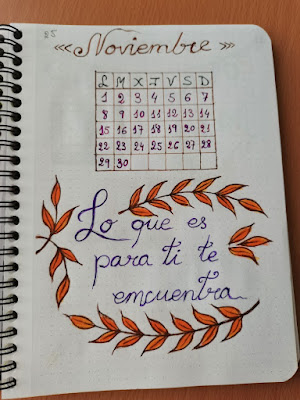 85
«Noviembre»
L M X J V S D
1 2 3 4 5 6 7
8 9 10 11 12 13 14
15 16 17 18 19 20 21
22 23 24 25 26 27 28
29 30
Lo que es
para ti te
encuentra